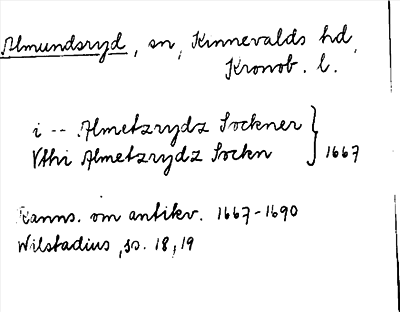 Almundsryd, sn, Kinnevalds hd,
Kronob. l.
i -- Almetzrydz Sockner
Vthi Almetzrydz Sockn } 1667
Ranns. om antikv. 1667-1690
Wilstadius, ss. 18, 19